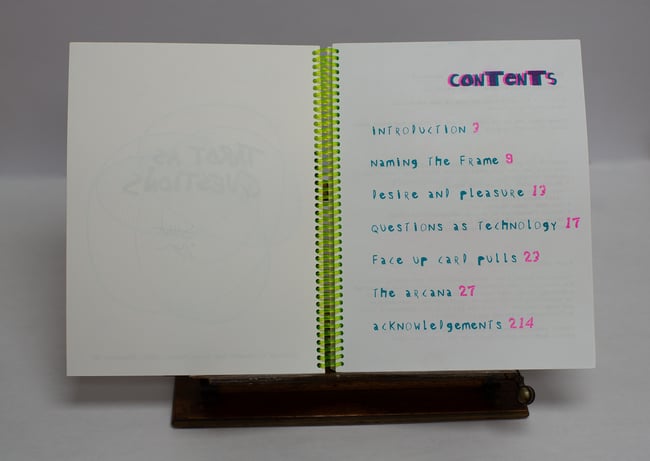 TAROT AS
QUESTIONS
CONTENTS
INTRODUCTION 3
Naming The Frame 9
Desire and pleasure 13
Questions as Technology 17
Face up card pulls 23
The arcana 27
acknowledgements 214